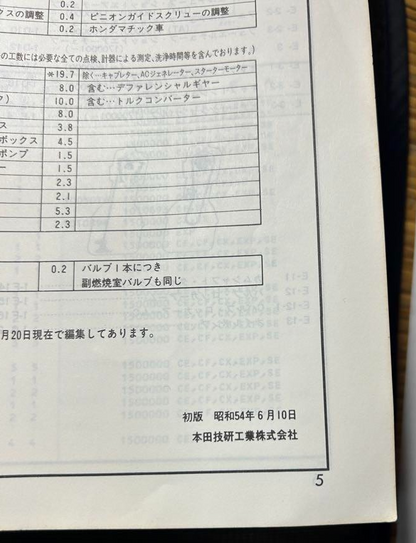 0.2
クスの調整 0.4 ピニオンガイドスクリューの調整
0.2 ホンダマチック車
の工数には必要な全ての点検、計器による測定、洗浄時間等を含んでおります。)
*19.7 除く…キャブレター、ACジェネレーター、スターターモーター
8.0 含む…デファレンシャルギヤー
ク) 10.0 含む…トルクコンバーター
8.0
ス 3.8
ボックス 4.5
ポンプ 1.5
ー 1.5
2.3
2.1
5.3
2.3
0.2 バルブ1本につき
副燃焼室バルブも同じ
月20日現在で編集してあります。
初版 昭和54年6月10日
本田技研工業株式会社
5